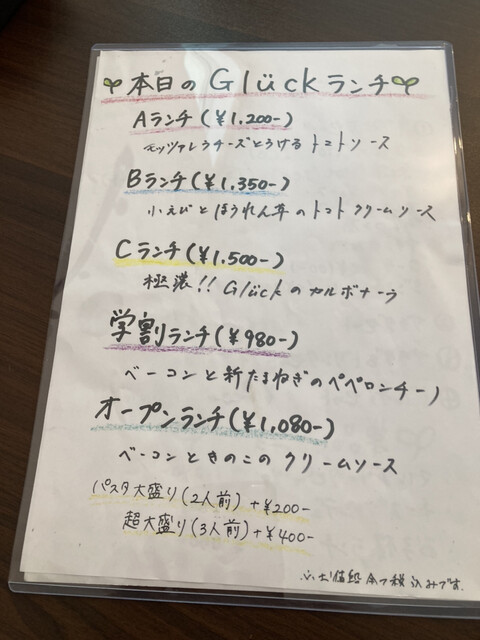 本日のGlückランチ
Aランチ(¥1,200-)
モッツァレラチーズとろけるトマトソース
Bランチ(¥1,350-)
小えびとほうれん草のトマトクリームソース
Cランチ(¥1,500-)
極濃!!Glückのカルボナーラ
学割ランチ(¥980-)
ベーコンと新たまねぎのペペロンチーノ
オープンランチ(¥1,080-)
ベーコンときのこのクリームソース
パスタ大盛り(2人前)+¥200-
超大盛り(3人前)+¥400-
税込みです。